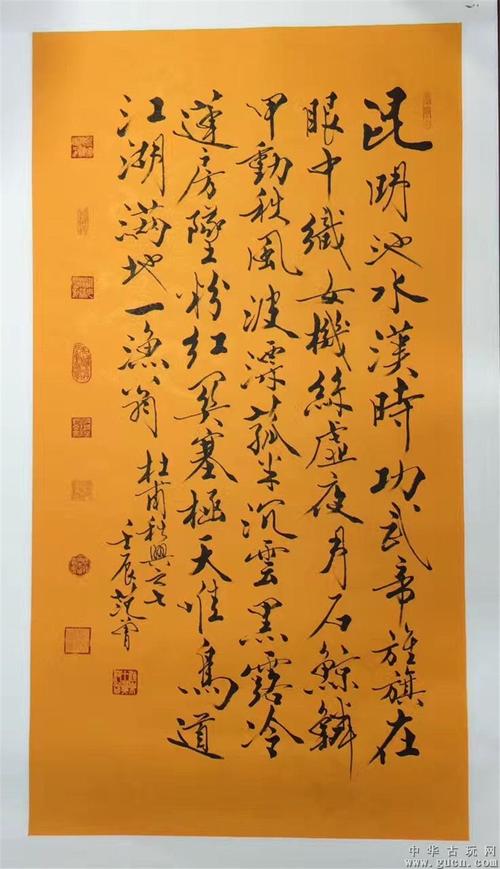 昆明池水漢時功武帝旌旗在
眼中織女機絲虛夜月石鯨鱗
甲動秋風波漂菰米沉雲黑露冷
蓮房墜粉紅關塞極天惟鳥道
江湖滿地一漁翁 杜甫秋興之七
壬辰范曾
中华古玩网
www.gucn.com